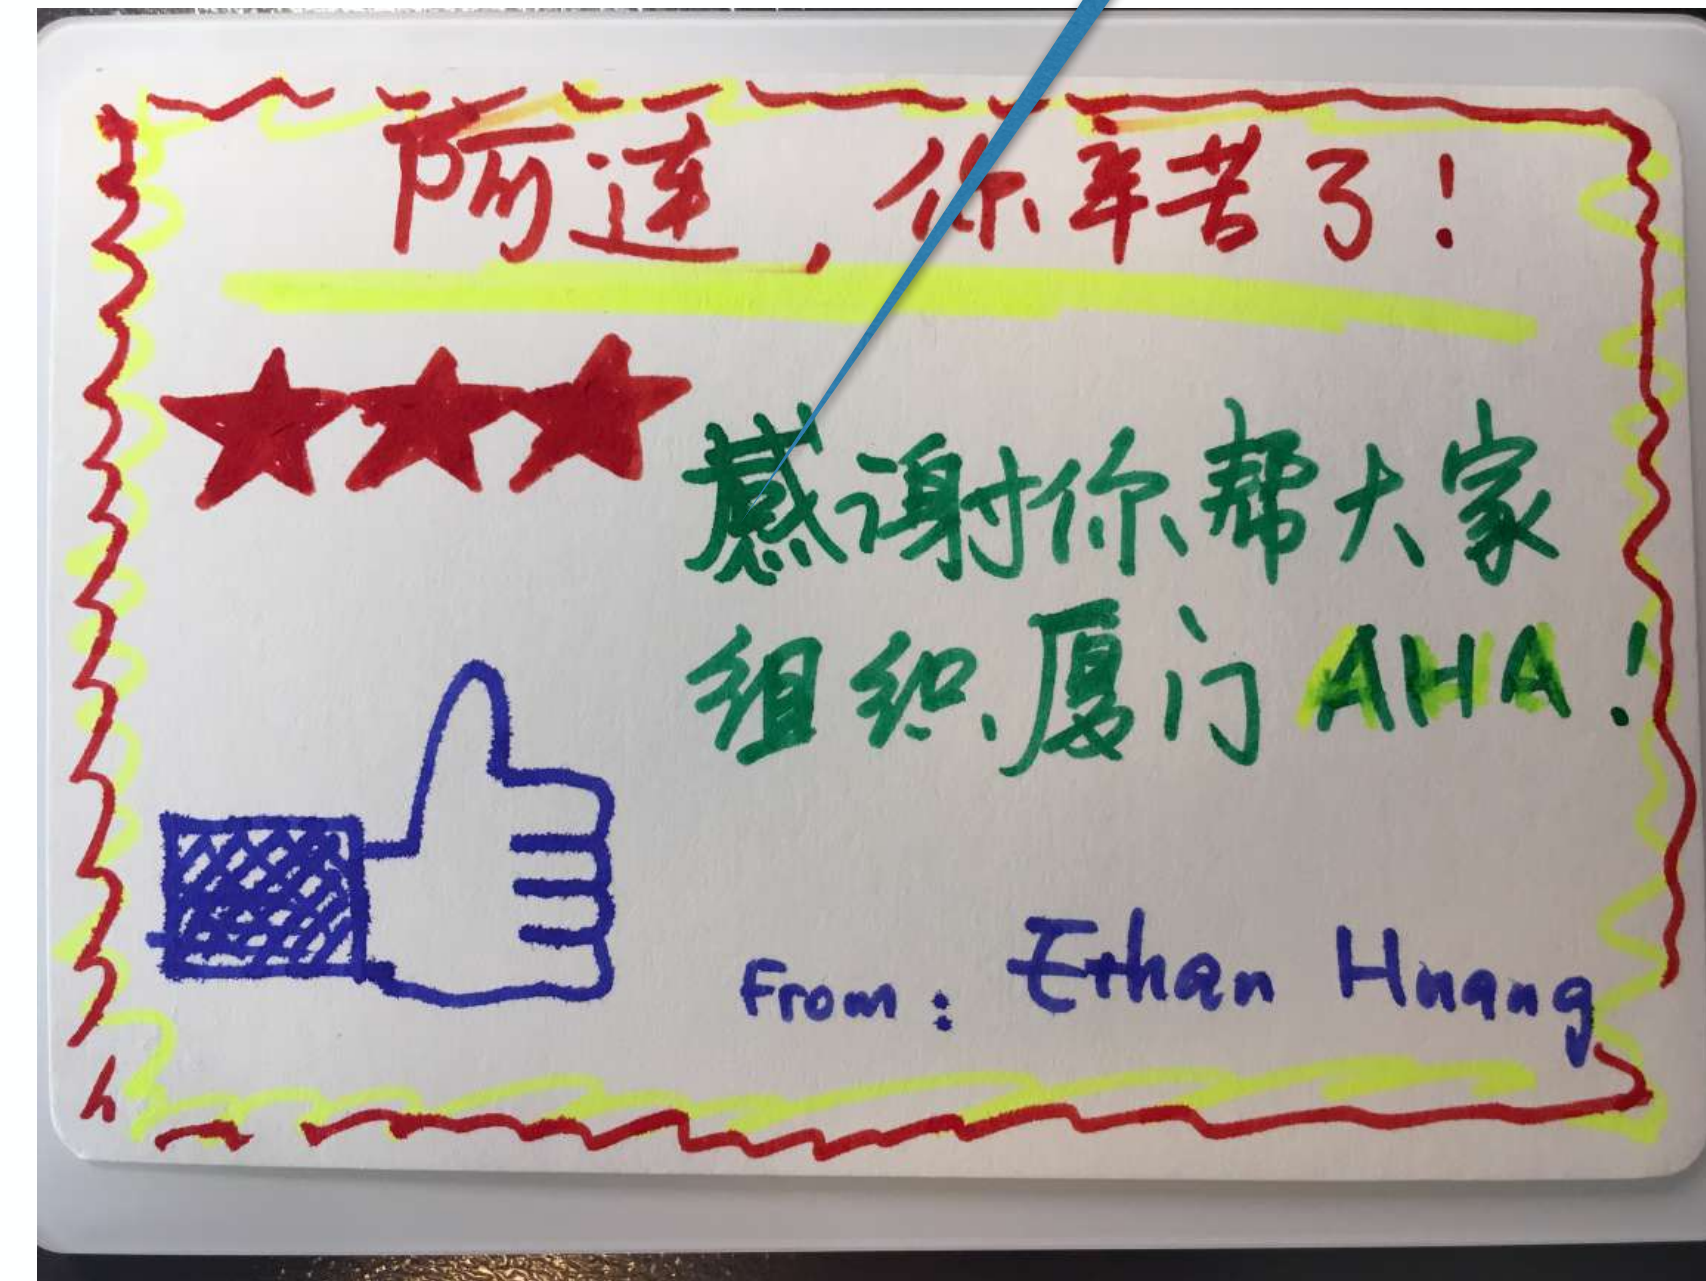 阿连，你辛苦了！
感谢你帮大家
组织厦门AHA！
From: Ethan Huang